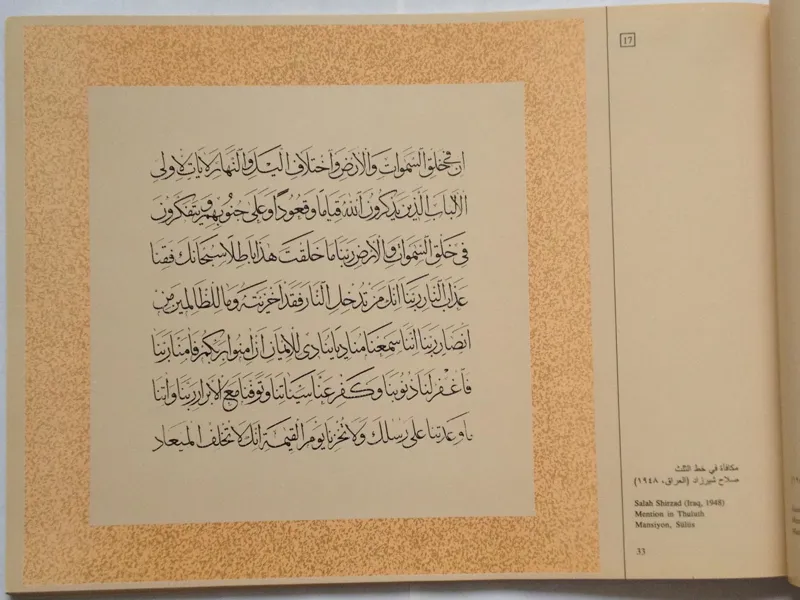 ان في خلق السموات والارض واختلاف اليل والنهار لايات لاولى
الالباب الذين يذكرون الله قياما وقعودا وعلى جنوبهم ويتفكرون
فى خلق السموات والارض ربنا ما خلقت هذا باطلا سبحانك فقنا
عذاب النار ربنا انك من تدخل النار فقد اخزيته وما للظالمين من
انصار ربنا اننا سمعنا مناديا ينادى للايمان ان امنوا بربكم فامنا ربنا
فاغفر لنا ذنوبنا وكفر عنا سيئاتنا وتوفنا مع الابرار ربنا واتنا
ما وعدتنا على رسلك ولا تخزنا يوم القيمة انك لا تخلف الميعاد
17
مكافأة في خط الثلث
صلاح شيرزاد (العراق، ١٩٤٨)
Salah Shirzad (Iraq, 1948)
Mention in Thuluth
Mansiyon, Sülüs
33